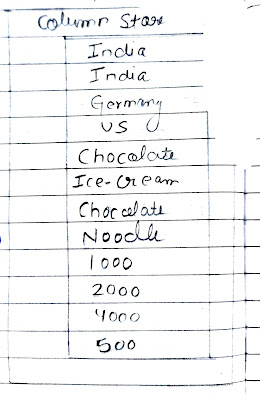 Column Store
India
India
Germany
US
Chocolate
Ice-Cream
Chocolate
Noodle
1000
2000
4000
500